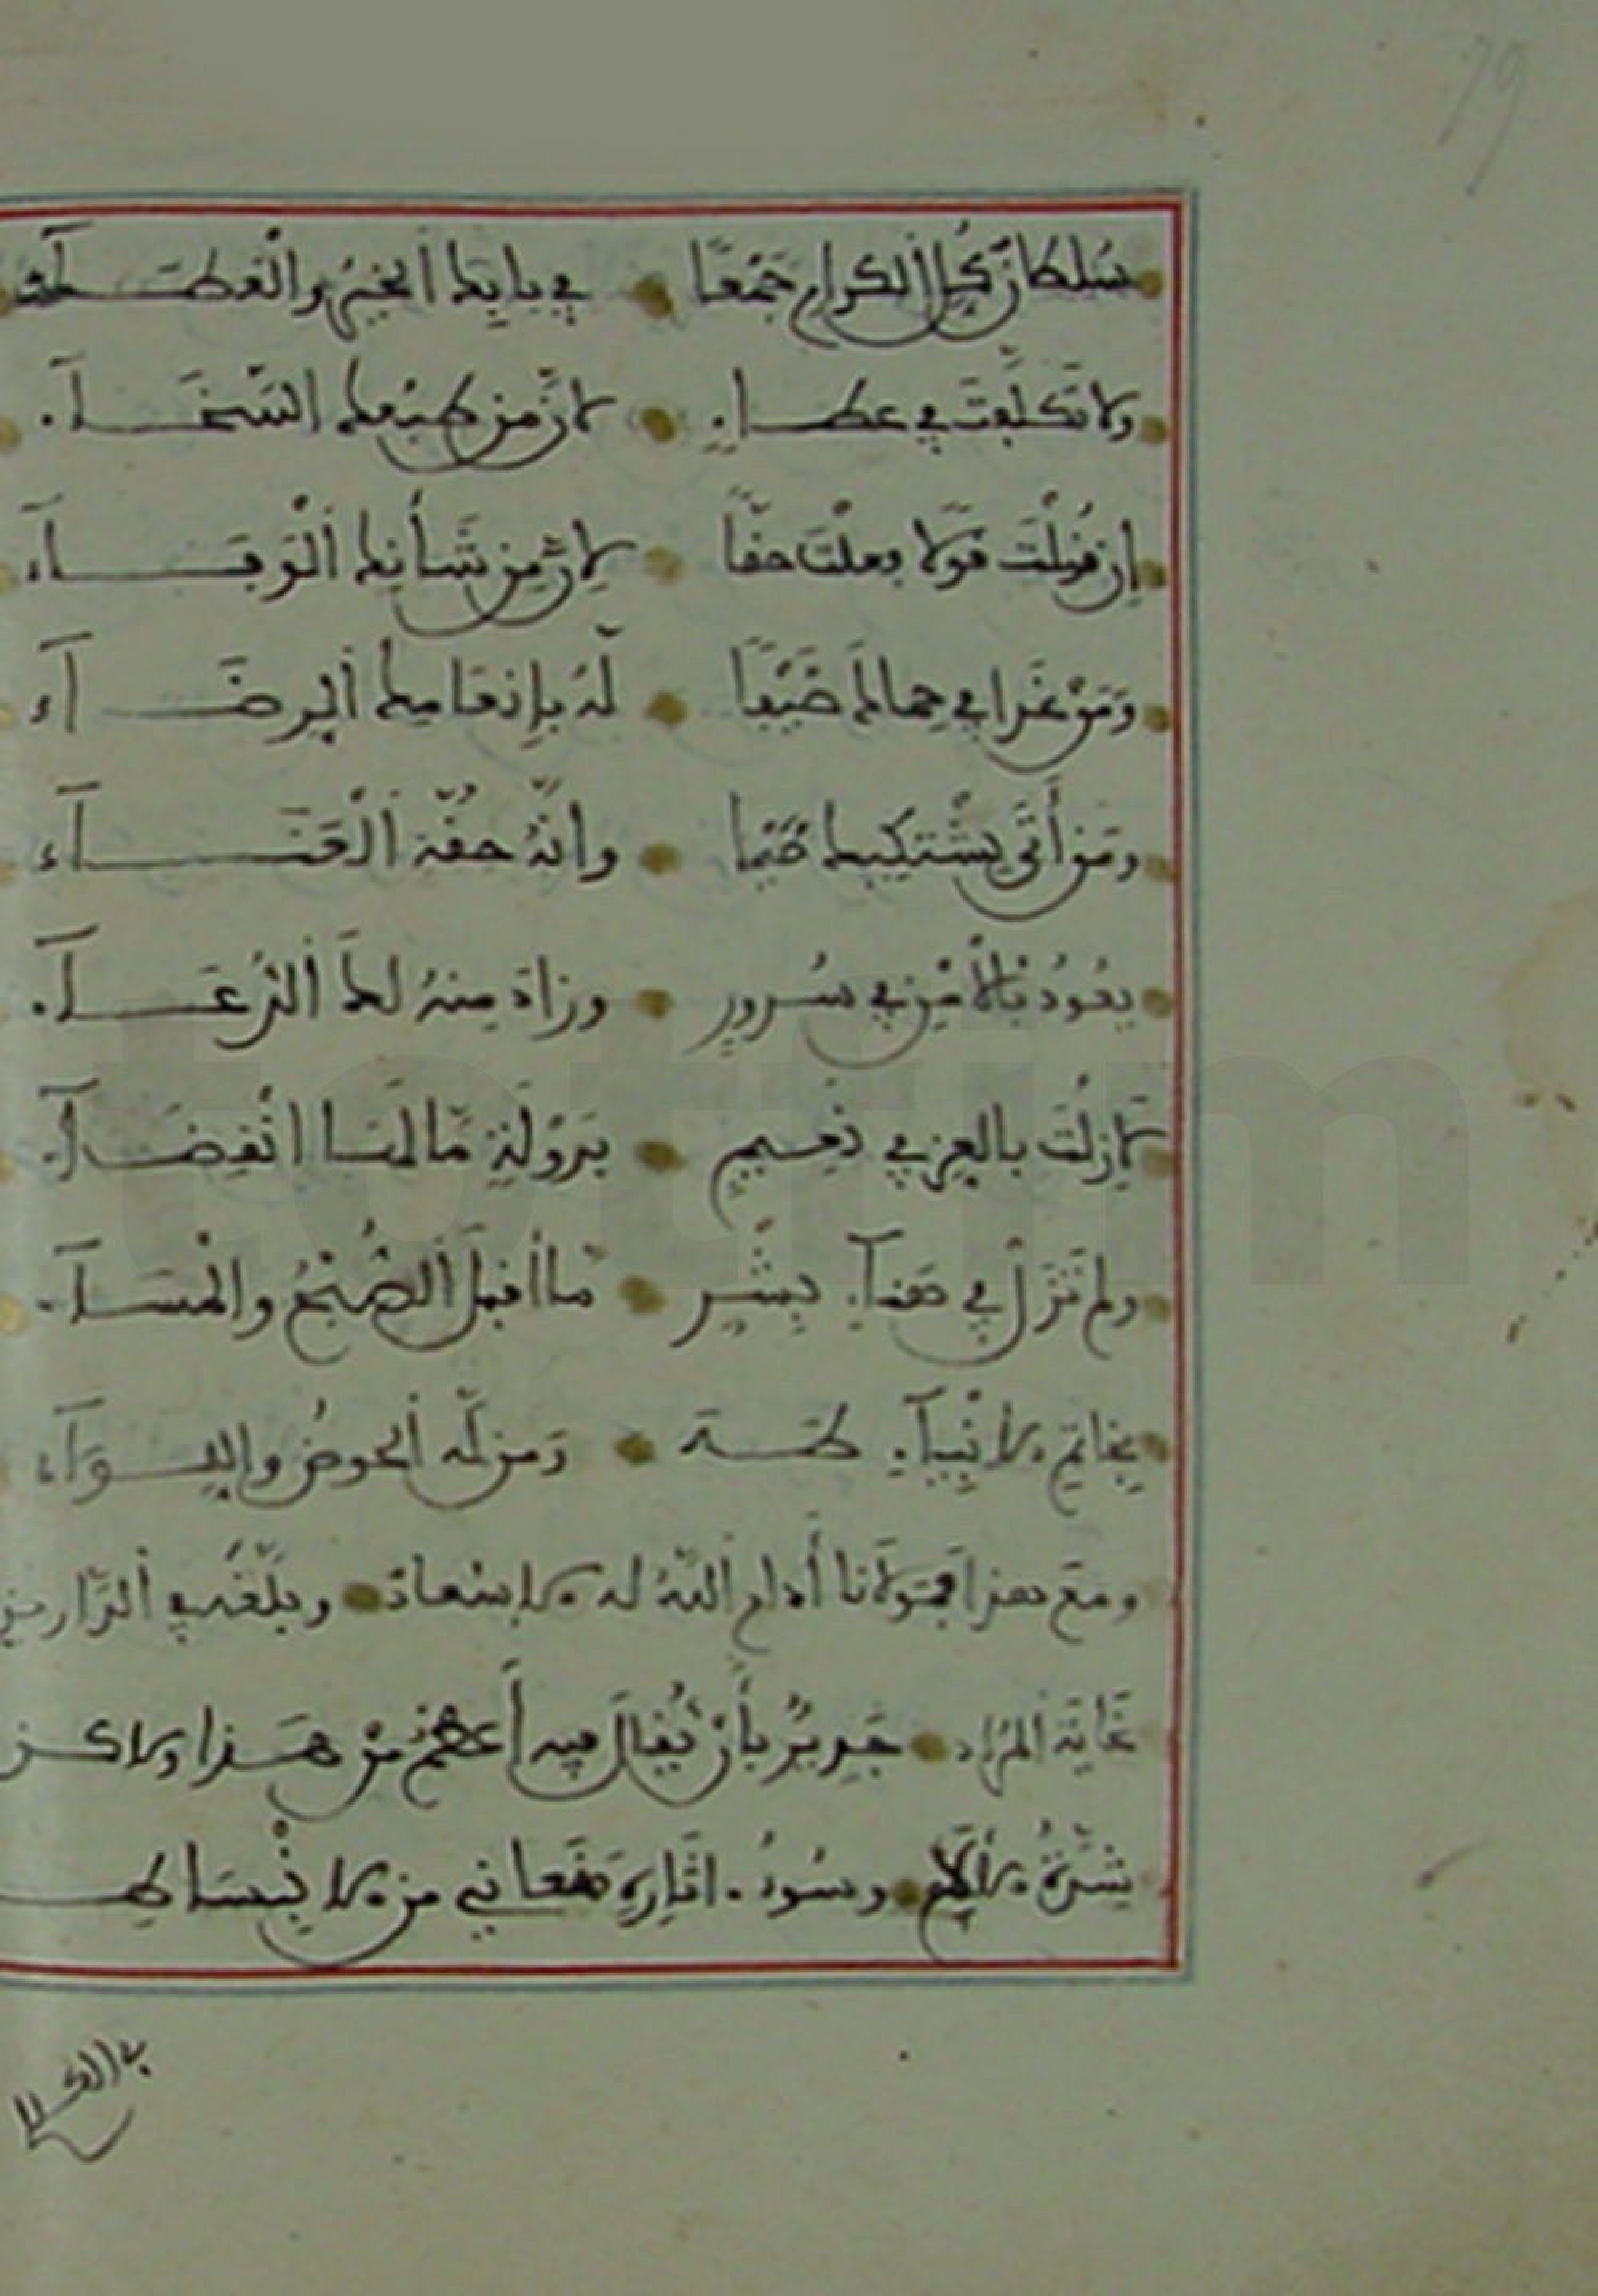 79
سُلطان كل الكرام جَمْعًا • في بابك الخير والعطاء
ولا تكلفت في عطاء • لأن من طبعك السخاء
إن قُلْتَ قَوْلا فعلت حقا • لأن من شأنك الْوَفاء
ومن غدا في حماك ضَيْفا • له بإنعامك الرضاء
ومن أتى يشتكيك ضَيْما • وانه حقه العناء
يعُودُ بالأمن في سرور • وزاد منه لك الدعاء
لا زلت بالعز في نعيم • بدولة ما لها انقضاء
ولم تزل في هناء بشر • ما أقبل الصُّبْحُ والمساء
بخاتم الأنبياء طه • ومن له الحوض واللواء
ومع هذا فمولانا أدام الله له الإسعاد • وبلغه في الدارين
غاية المراد • جدير بأن يُقال فيه أعظم من هذا ولاكن
شدة الألم • وسُوء اثاره منعاني من الانبساط
في الكلام